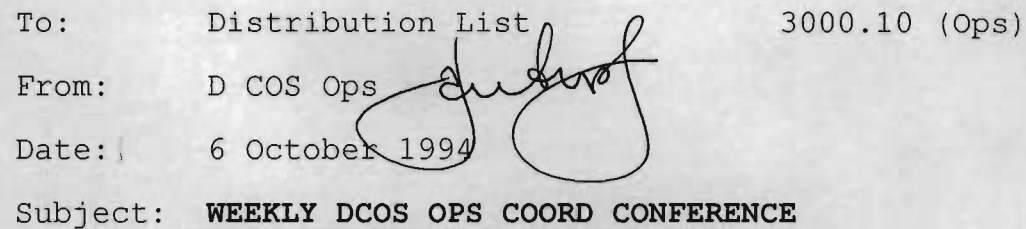 To: Distribution List 3000.10 (Ops)
From: D COS Ops
Date: 6 October 1994
Subject: WEEKLY DCOS OPS COORD CONFERENCE